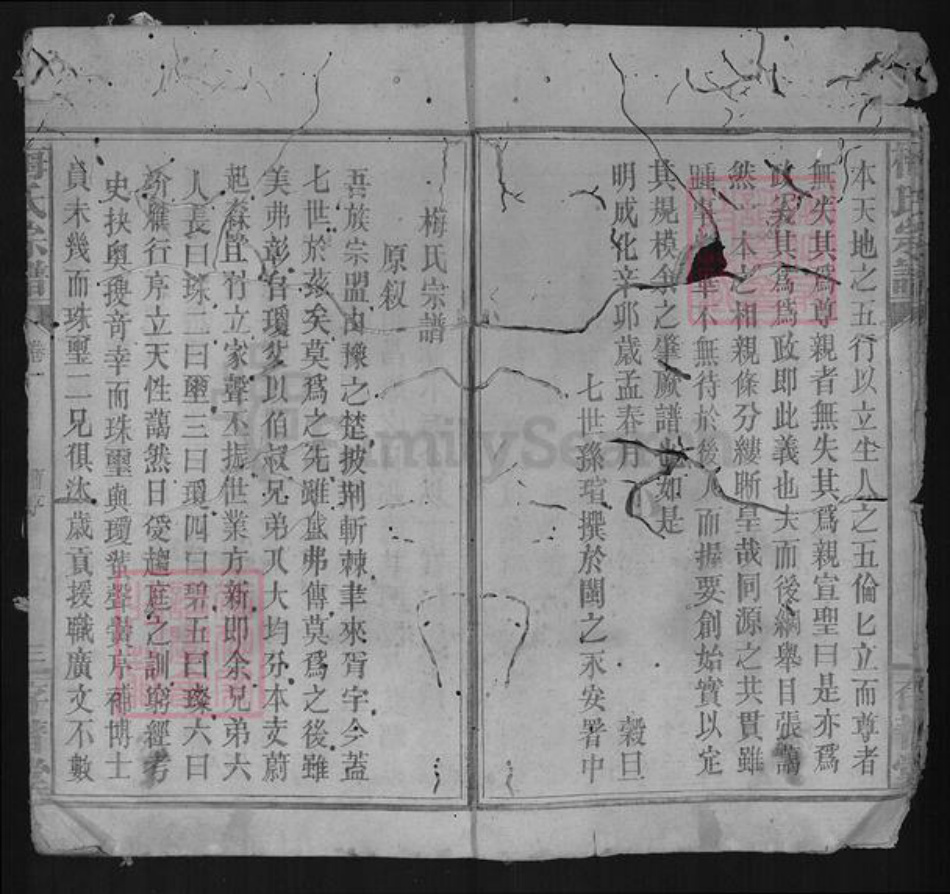 本天地之五行以立生人之五倫匕立而尊者
無失其爲尊親者無失其爲親宣聖曰是亦爲
政奚其爲爲政即此義也夫而後綱舉目張藹
然一本之相親條分縷晰皇哉同源之共貫雖
踵事 華不無待於後人而握要創始實以定
其規模余之肇厥譜 如是
明成化辛耶歲孟春月 穀旦
七世孫瑄撰於閩之永安署中
梅氏宗譜
原叙
吾族宗盟由豫之楚披荆斬棘聿來胥宇今蓋
七世於茲矣莫爲之先雖盛弗傳莫爲之後雖
美弗彰自瓊父以伯叔兄弟八大均分本支蔚
起森且竹立家聲丕振世業方新即余兄弟六
人長曰珠二曰璽三曰瓊四曰碧五曰璨六曰
玠雁行序立天性藹然日受趨庭之訓窮經考
史抉奥搜竒幸而珠璽與瓊蜚聲黌序補博士
員未幾而珠璽二兄俱汰歲貢援職廣文不數
梅氏宗譜
卷一
三
梅氏宗譜
FamilySearch